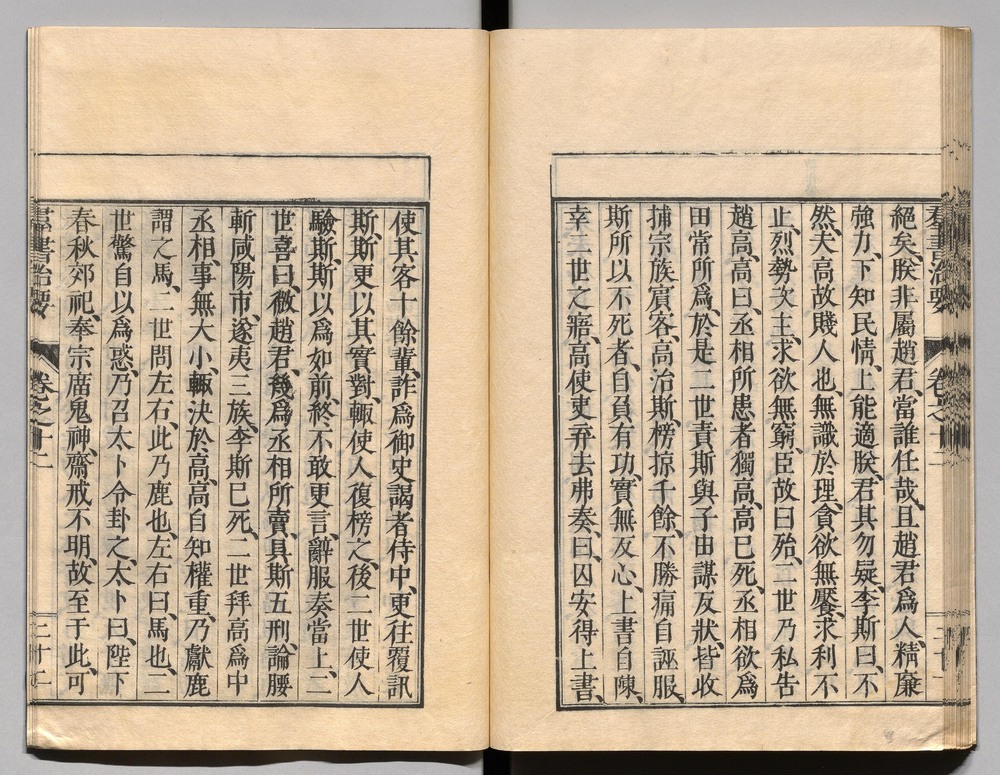 羣書治要 卷之十二
絕矣、朕非屬趙君、當誰任哉、且趙君爲人精廉
強力、下知民情、上能適朕、君其勿疑、李斯曰、不
然、夫高故賤人也、無識於理、貪欲無饜、求利不
止、烈勢次主、求欲無窮、臣故曰殆、二世乃私告
趙高、高曰、丞相所患者獨高、高已死、丞相欲爲
田常所爲、於是二世責斯與子由謀反狀、皆收
捕宗族賓客、高治斯、榜掠千餘、不勝痛自誣服、
斯所以不死者、自負有功、實無反心、上書自陳、
幸二世之寤、高使吏弃去弗奏、曰、囚安得上書、
使其客十餘輩、詐爲御史謁者侍中、更往覆訊
斯、斯更以其實對、輒使人復榜之、後二世使人
驗斯、斯以爲如前、終不敢更言、辭服奏當上、二
世喜曰、微趙君、幾爲丞相所賣、具斯五刑、論腰
斬咸陽市、遂夷三族、李斯已死、二世拜高爲中
丞相、事無大小、輒決於高、高自知權重、乃獻鹿
謂之馬、二世問左右、此乃鹿也、左右曰、馬也、二
世驚自以爲惑、乃召太卜令卦之、太卜曰、陛下
春秋郊祀、奉宗庿鬼神、齋戒不明、故至于此、可
羣書治要 卷之十二 三十二